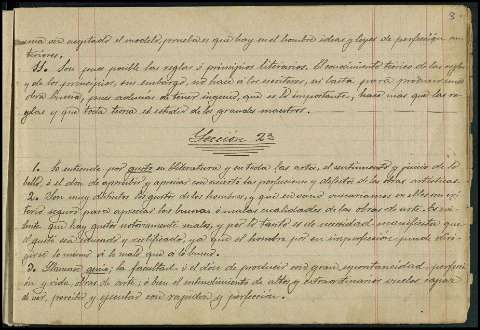 3
una vez aceptado el modelo, prueba es que hay en el hombre ideas y leyes de perfección an
teriores.
11. Son pues posible las reglas ó principios literarios. El conocimiento teórico de las reglas
y de los principios, sin embargo, no hace a los escritores, ni basta para producir una
obra buena, pues además de tener ingenio, que es lo importante, hace mas que las re
glas y que toda teoría el estudio de los grandes maestros.
Lección 2ª
1. Se entiende por gusto en literatura y en todas las artes, el sentimiento y juicio de lo
bello, ó el don de aprobar y apreciar con acierto las perfecciones y defectos de las obras artísticas.
2. Son muy distintos los gustos de los hombres, y
torio seguro para apreciar las buenas ó malas cualidades de las obras de arte. Es evi
dente que hay gustos notoriamente malos, y por lo tanto es de necesidad
el gusto sea educado y rectificado, ya que el hombre por su imperfección puede
girse lo mismo a lo malo que a lo bueno.
3. Llámase genio, la facultad ó el don de producir con gran espontaneidad, perfección
y vida, obras de arte, ó bien el entendimiento de altos y extraordinarios vuelos capaz
de ver, percibir y ejecutar con rapidez y perfección.